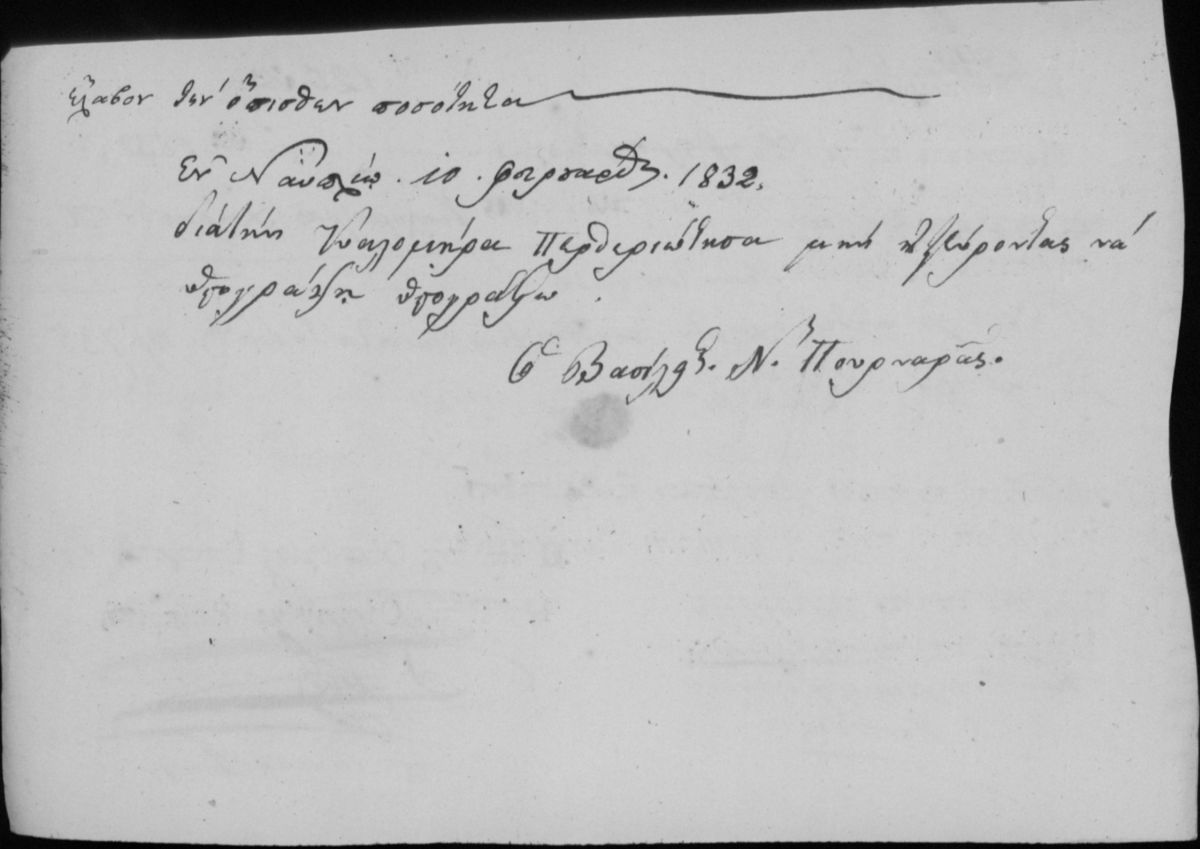 ἔλαβον τὴν ὄπισθεν ποσότητα
Ἐν Ναυπλίῳ. 10. φευρουαρίου. 1832.
διὰ τὴν Καλομοίρα Περθεριώτησα μὴν ἠξεύροντας νὰ
ὑπογράψη ὑπογράφω.
Ὁ Βασίλειος. Ν. Πουρναρᾶς.